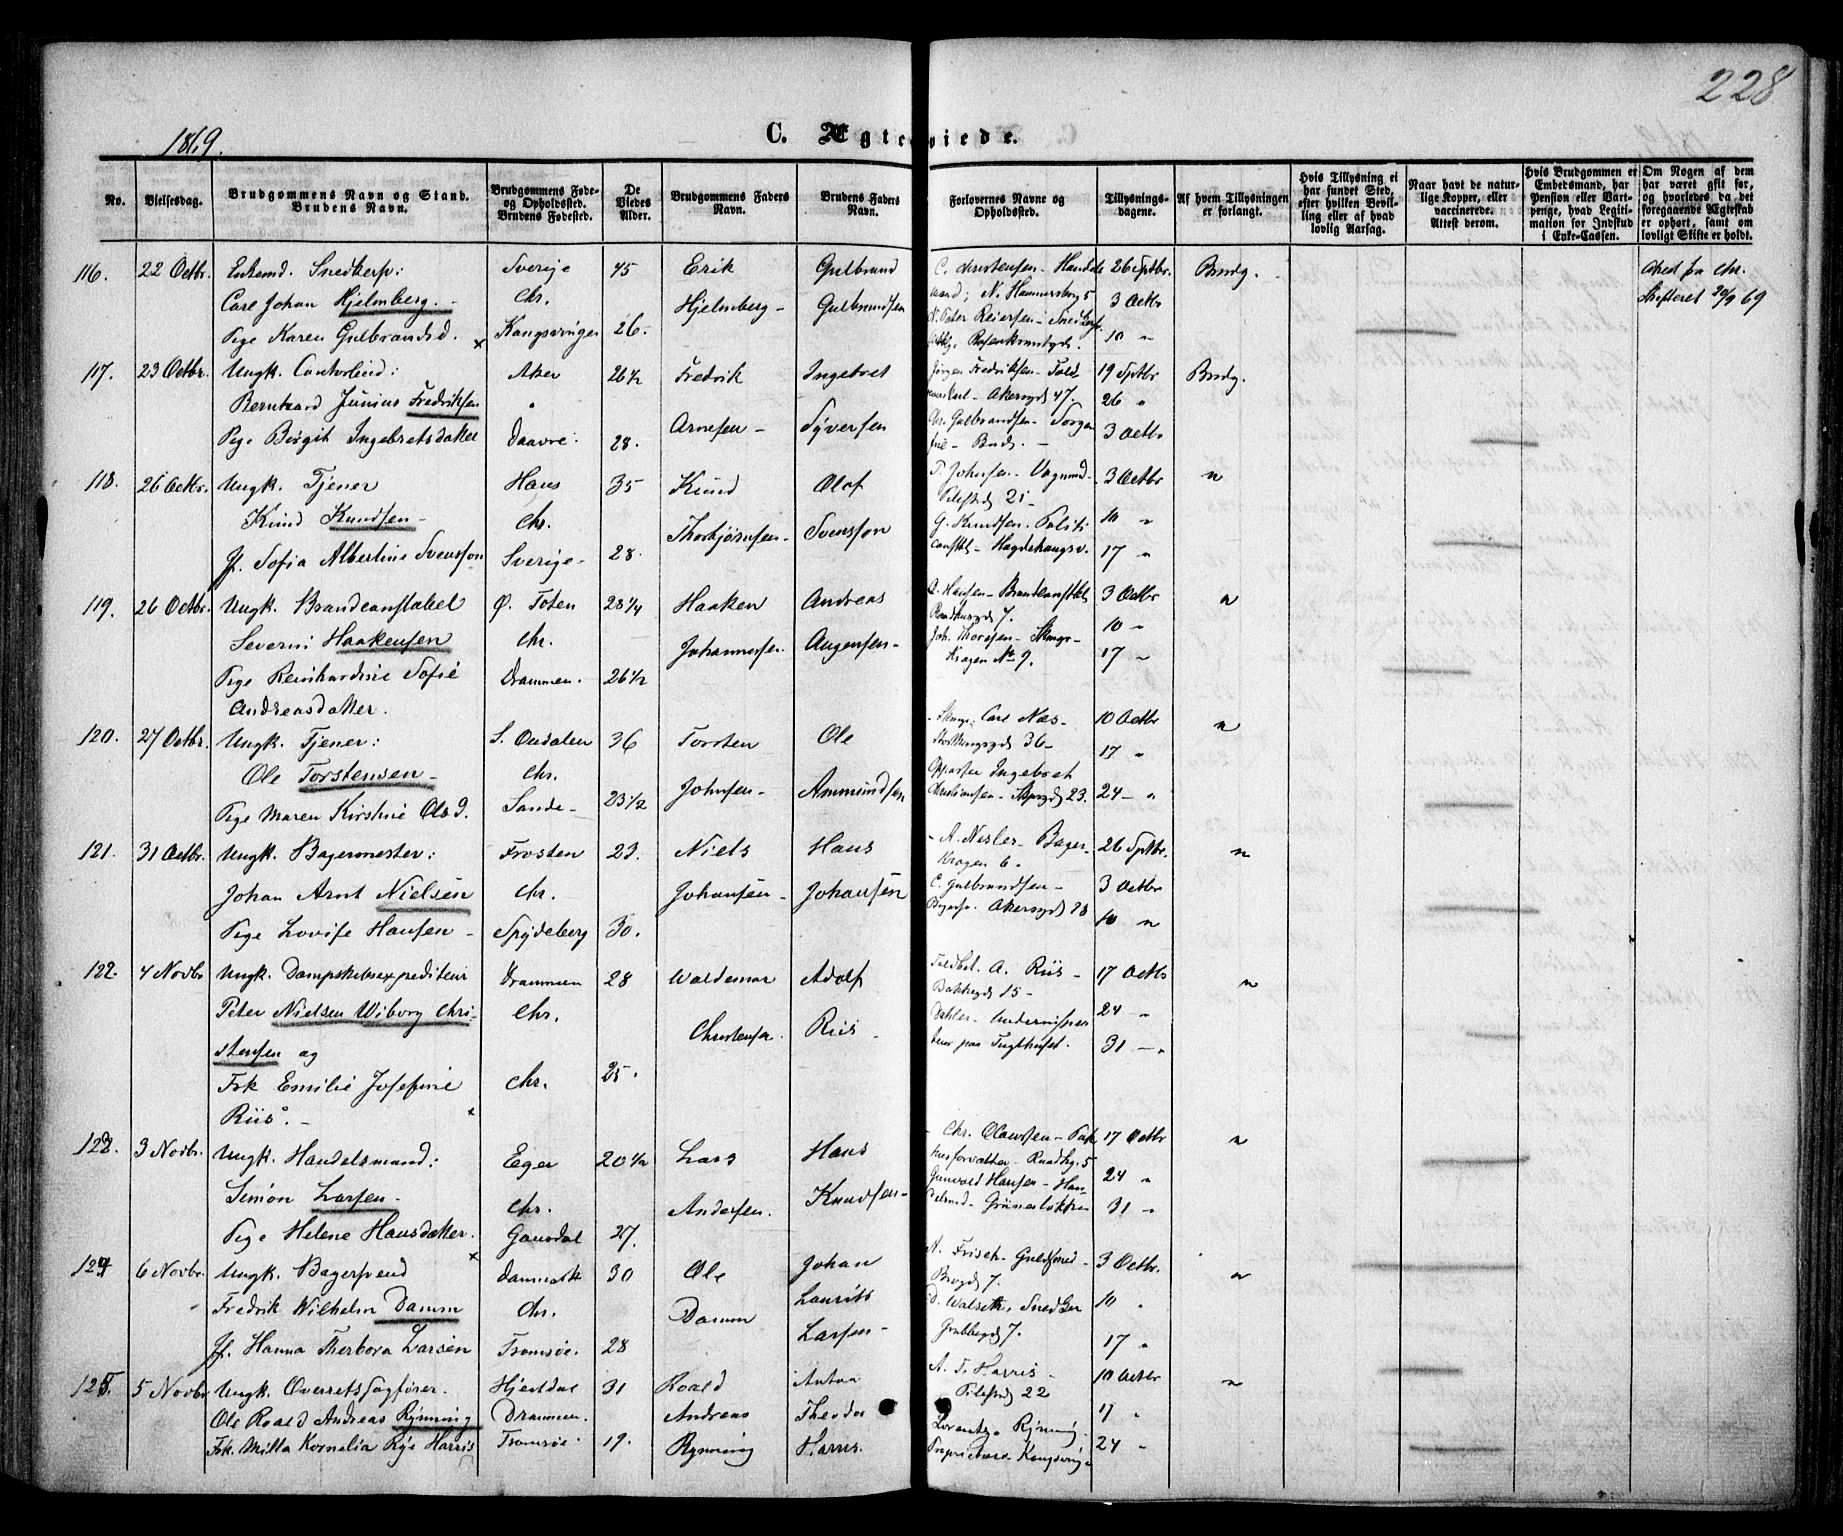 228
1869.
C. Ægteviede.
No.
Vielsesdag.
Brudgommens Navn og Stand.
Brudens Navn.
Brudgommens Føde-
og Opholdssted.
Brudens Fødested.
De
Viedes
Alder.
Brudgommens Faders
Navn.
Brudens Faders
Navn.
Forlovernes Navne og
Opholdssted.
Tillysnings-
dagene.
Af hvem Tillysningen
er forlangt.
Hvis Tillysning ei
har fundet Sted,
efter hvilken Bevil-
ling eller af hvad
lovlig Aarsag.
Naar havt de natur-
lige Kopper, eller
vaccinerede.
Attest derom.
Hvis Brudgommen er
Embedsmand, har
Pension eller Vart-
penge, hvad Legiti-
mation for Indskud
i Enke-Cassen.
Om Nogen af dem
har været gift før,
og hvorledes da det
foregaaende Ægteskab
er ophørt, samt om
lovligt Skifte er holdt.
116. 22 Octbr. Enkemd. Snedkersv: Sverige 45 Erik Gulbrand C. Christensen - Handels 26 Sptbr. Brudg.
Carl Johan Hjelmberg. Chr. Hjelmberg - Gulbrandsen mand; N. Hammersborg 5 3 Octbr
Pige Karen Gulbrandsd. Kongsvinger 26. N. Peter Reiersen - Snedkersv. 10 "
Skiftet 30/9 69
117. 23 Octbr. Ungk. Contorbud: Aker 26 1/2 Fredrik Ingebret Jørgen Fredriksen - Told 19 Sptbr Brudg.
Bernhard Junius Fredriksen " Arnesen - Syversen Akersgd 47. 26 "
Pige Børgit Ingebretsdatter Daavre. 28. Chr. Gulbrandsen - Torgen 3 Octbr
118. 26 Octbr. Ungk. Tjener Haus 35 Knud Olof T. Johnsen - Vognmd - 3 Octbr "
Knud Knudsen - Chr. Thorbjørnsen - Svensson Pilestrd 21 10 "
Jf. Sofia Albertine Svensson Sverige - 28. G. Knudsen. Politi 17 "
constbl - Hægdehaugsv.
119. 26 Octbr. Ungk. Brandconstabel Ø. Toten 28 1/4 Haaken Andreas O. Hansen - Brandconstbl 3 Octbr "
Severin Haakensen Chr. Johannessen. Augensen - Raadhusgd 7. 10 "
Pige Reinhardine Sofie Drammen. 26 1/2 Joh. Thoresen - 17 "
Andreasdatter. Kragen No 9.
120. 27 Octbr. Ungk. Tjener: S. Oudalen 36 Torsten Ole Carl Næs - 10 Octbr "
Ole Torstensen - Chr. Johnsen - Ammundsen Storthingsgd 36 - 17 "
Pige Maren Kirstine Olsd. Sande - 23 1/2 Ingebret 24 - "
Christiansen - 23.
121. 31 Octbr. Ungk. Bagermester: Frosten 23. Niels Hans A. Nesler - Bager - 26 Sptbr. "
Johan Arnt Nielsen Chr. Johansen - Johansen Kragen 6. 3 Octbr
Pige Lovise Hansen - Spydeberg 30. C. Gulbrandsen - 10 "
Bagersv. Akersgd 28
122. 4 Novbr Ungk. Dampskibsexpediteur Drammen 28 Waldemar Adolf Toldbet. A. Riis - 17 Octbr "
Peter Nielsen Wiborg Chri- Chr. Christensen. Riis. Bakkegd 15 - 24 "
stensen og 31 - "
Frk Emilie Josefine Chr. 25.
Riis. -
123. 3 Novbr. Ungk. Handelsmand: Eger 20 1/2 Lars Hans Chr. Olaussen - Pak 17 Octbr "
Simon Larsen - Chr. Andersen. Knudsen - husforvalter - Raadhg. 5 24 "
Pige Helene Hansdatter. Gausdal 27. Grunvald Hansen - Han- 31 "
delsmd - Grünerløkken
124 6 Novbr. Ungk. Bagersvend Danmark 30 Ole Johan A. Frisch. Guldsmed - 3 Octbr. "
Fredrik Wilhelm Damm Chr. Damm Laurits Brogd 7. 10 "
Jf. Hanna Therbora Larsen Tromsøe. 28 Larsen - D. Walseth, Snedker 17 "
Grubbegd 7.
125. 5 Novbr Ungk. Overretssagfører. Hjertdal 31 Roald Anton A. T. Harris - 10 Octbr "
Ole Roald Andreas Rynning Drammen. Andreas Theodor Pilestrd 22 17 "
Frk. Milla Kornelia Rye Harris Tromsøe. 19. Rynning Harris. Lorentz. Rynning. 24 "
Proprietær Kongsving.